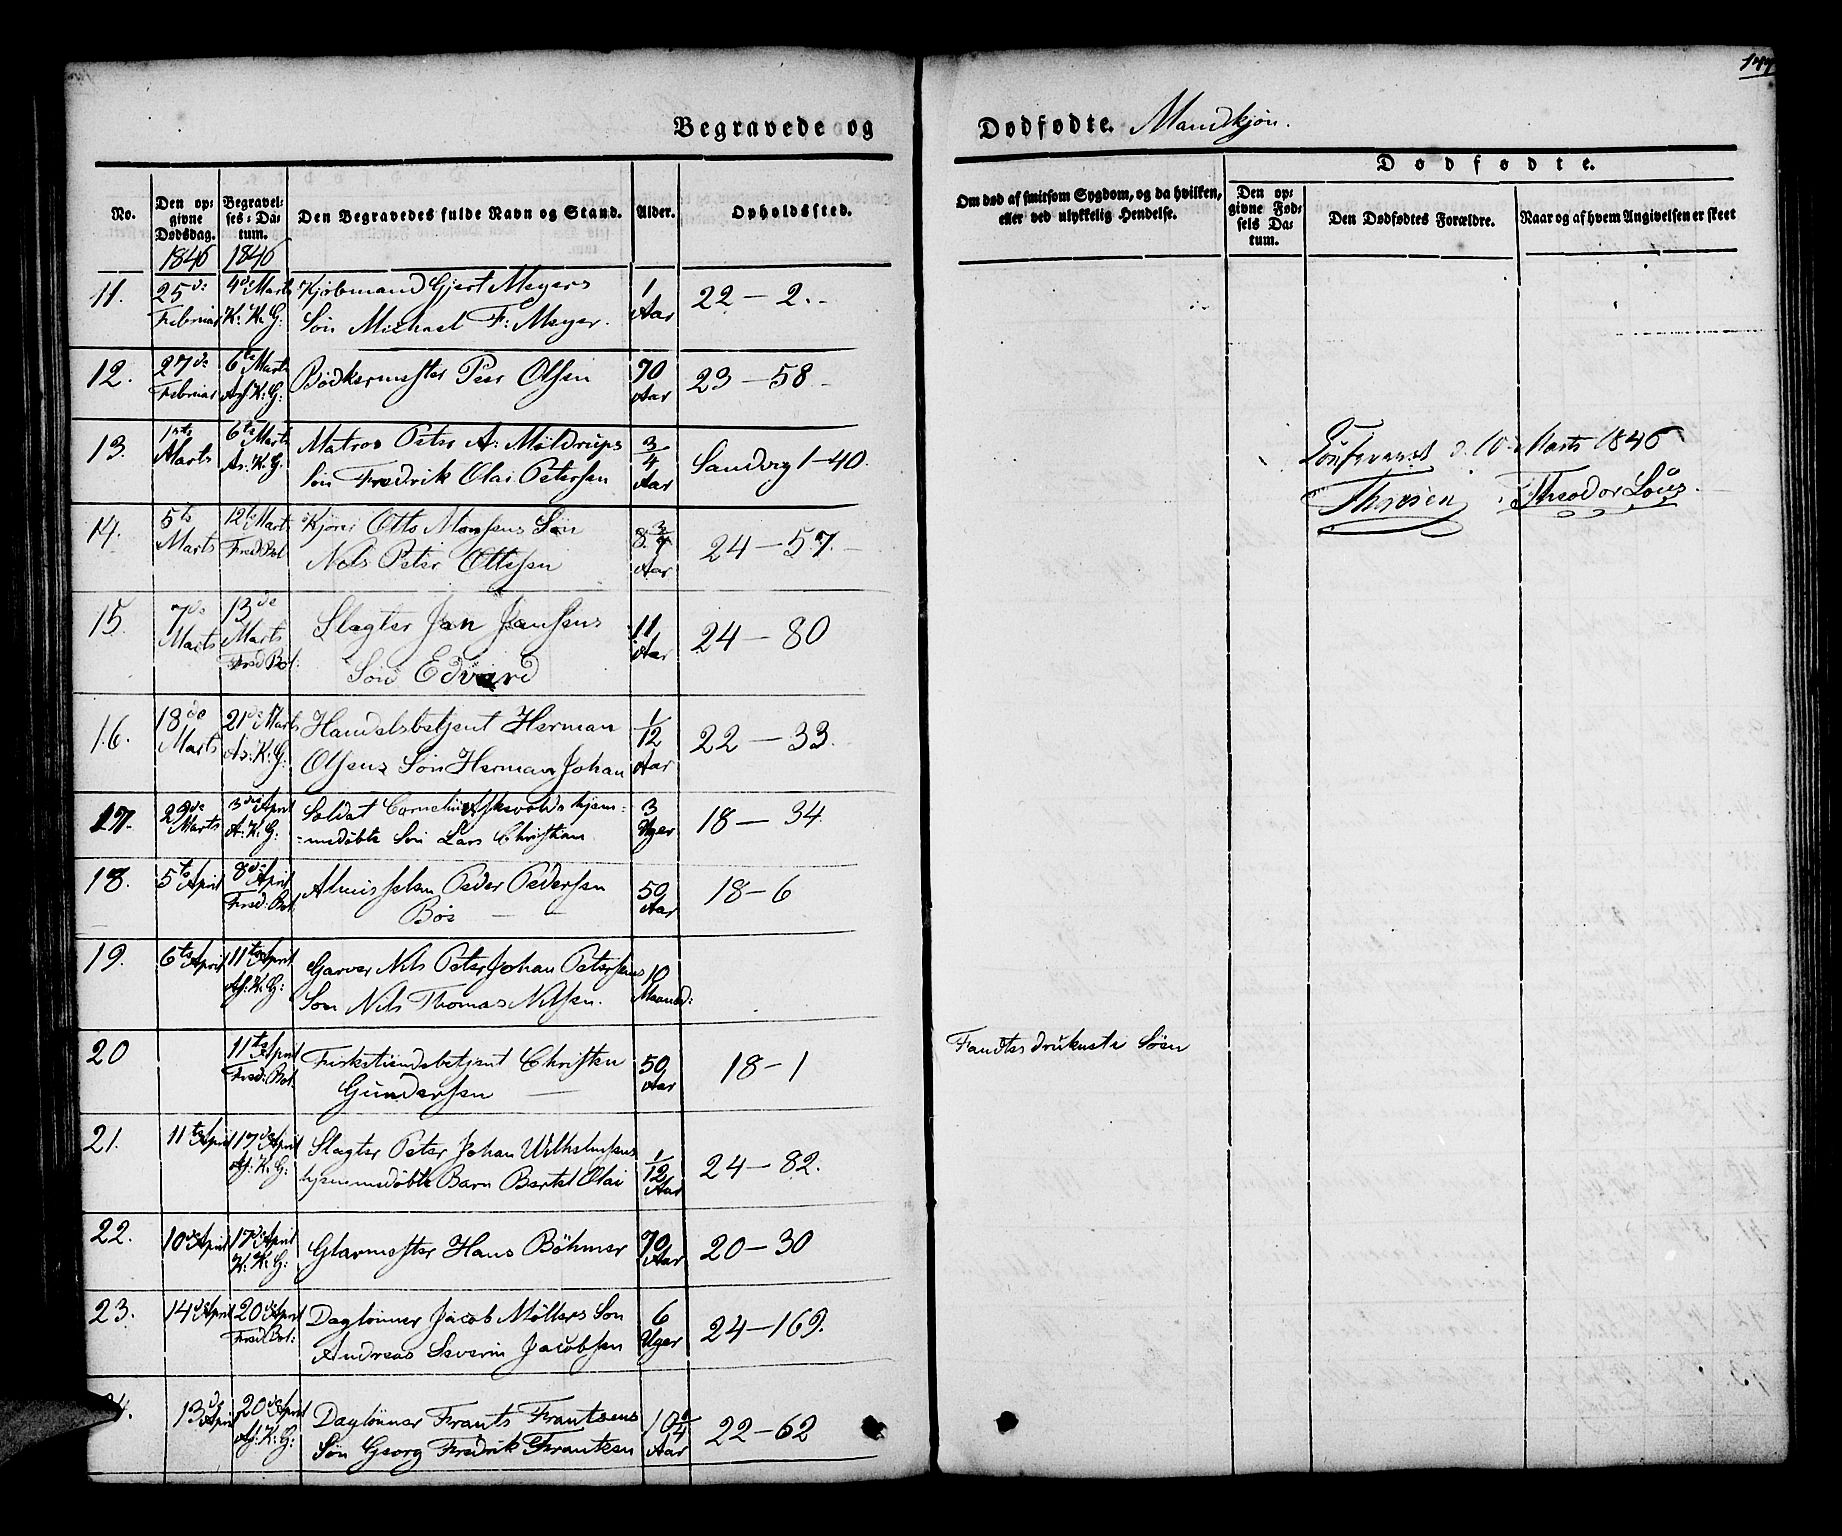 177
Begravede og
Dødfødte. Mandkjøn.
No.
Den op=
givne
Dødsdag.
Begravel=
ses=Da=
tum.
Den Begravedes fulde Navn og Stand.
Alder.
Opholdssted.
Om død af smitsom Sygdom, og da hvilken,
eller ved ulykkelig Hendelse.
Dødfødte.
Den op=
givne Fød=
sels Da=
tum.
Den Dødfødtes Forældre.
Naar og af hvem Angivelsen er skeet
1846 1846
11. 25de Februar 4de Marts K. K. G: Kjøbmand Gjert Meyers
Søn Michael F: Meyer. 1 Aar 22 — 2.
12. 27de Februar 6te Marts As: K: G: Bødkermester Peer Olsen 70 Aar 23 — 58
13. 1ste Marts 6te Marts As: K: G: Matros Peter A: Møldrups
Søn Fredrik Olai Petersen 3/4 Aar Sandvig 1-40.
14. 5te Marts 12te Marts Fred: Bol Otto Monsens Søn
Nels Peter Ottesen 8 3/4 Aar 24 — 57.
15. 7de Marts 13de Marts Fred Bol: Slagter Jan Jansens
Søn Edvard 11 Aar 24 — 80
16. 18de Marts 21de Marts As: K: G: Handelsbetjent Herman
Olsens Søn Herman Johan 1/12 Aar 22 — 33.
17. 29de Marts 3die April A: K: G: Soldat Cornelius Askevolds hjem=
=medøbte Søn Lars Christian 3 Uger 18 — 34.
18. 5te April 8de April Fred: Bol. Almisselem Peder Pedersen
Bøe 50 Aar 18 — 6
19. 6te April 11te April As: K: G: Garver Nils Peter Johan Petersens
Søn Nils Thomas Nilsen. 10 Maaned:
20 11te April Fred: Bol Christen
Gundersen 50 Aar 18 — 1 Fandtes druknet i Søen
21. 11te April 17de April As: K: G: Slagter Peter Johan Wilhelmsens
hjemmedøbte Barn Bertel Olai 1/12 Aar 24 — 82.
22. 10de April 17de April K: K: G: Glarmester Hans Böhmer 70 Aar 20 — 30
23. 14de April 20de April Fred Bol: Daglønner Jacob Møllers Søn
Andreas Severin Jacobsen 6 Uger 24 — 169.
24. 13de April 20de April As: K: G: Daglønner Frants Frantsens
Søn Georg Fredrik Frantsen 10 1/4 Aar 22 — 62
d. 10 Marts 1846
Theodor Løus